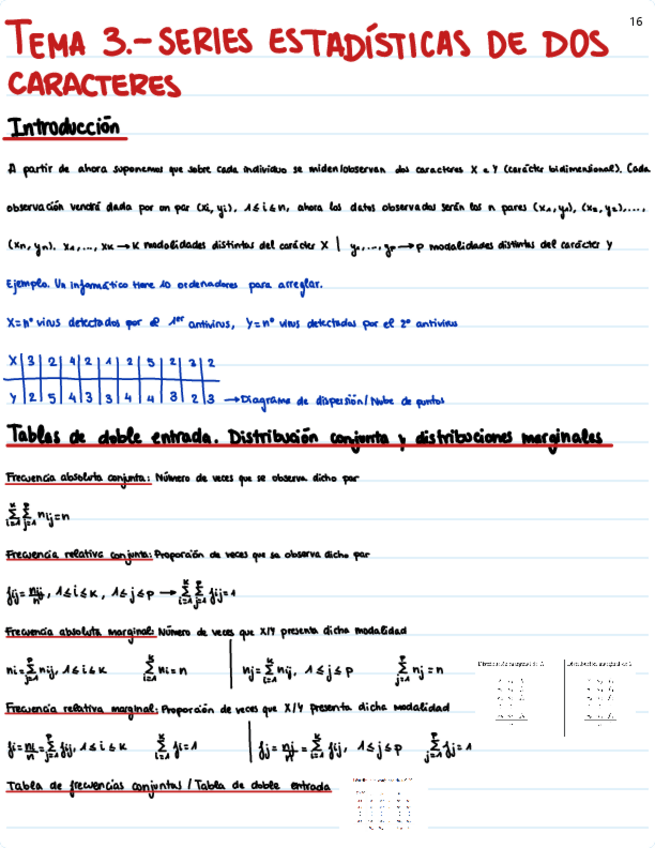 16
TEMA 3.- SERIES ESTADÍSTICAS DE DOS
CARACTERES
Introducción
A partir de ahora suponemos que sobre cada individuo se miden/observan dos caracteres X e Y (carácter bidimensional). Cada
observación vendrá dada por un par (xi, yi), 1≤i≤n, ahora los datos observados serán los n pares (x₁,y₁), (x₂,y₂),...,
(xn, yn). x₁,..., xk → k modalidades distintas del carácter X | y₁,..., yp → p modalidades distintas del carácter Y
Ejemplo. Un informático tiene 10 ordenadores para arreglar.
X=nº virus detectados por el 1er antivirus, Y=nº virus detectados por el 2º antivirus
X | 3 | 2 | 4 | 2 | 1 | 2 | 5 | 2 | 3 | 2
Y | 2 | 5 | 4 | 3 | 3 | 4 | 4 | 3 | 2 | 3 → Diagrama de dispersión / Nube de puntos
Tablas de doble entrada. Distribución conjunta y distribuciones marginales
Frecuencia absoluta conjunta: Número de veces que se observa dicho par
∑i=1^k ∑j=1^p nij=n
Frecuencia relativa conjunta: Proporción de veces que se observa dicho par
fij= nij/n, 1≤i≤k, 1≤j≤p → ∑i=1^k ∑j=1^p fij=1
Frecuencia absoluta marginal: Número de veces que X/Y presenta dicha modalidad
ni=∑j=1^p nij, 1≤i≤k ∑i=1^k ni=n | nj=∑i=1^k nij, 1≤j≤p ∑j=1^p nj=n
Frecuencia relativa marginal: Proporción de veces que X/Y presenta dicha modalidad
fi=ni/n=∑j=1^p fij, 1≤i≤k ∑i=1^k fi=1 | fj=nj/n=∑i=1^k fij, 1≤j≤p ∑j=1^p fj=1
Tabla de frecuencias conjuntas / Tabla de doble entrada